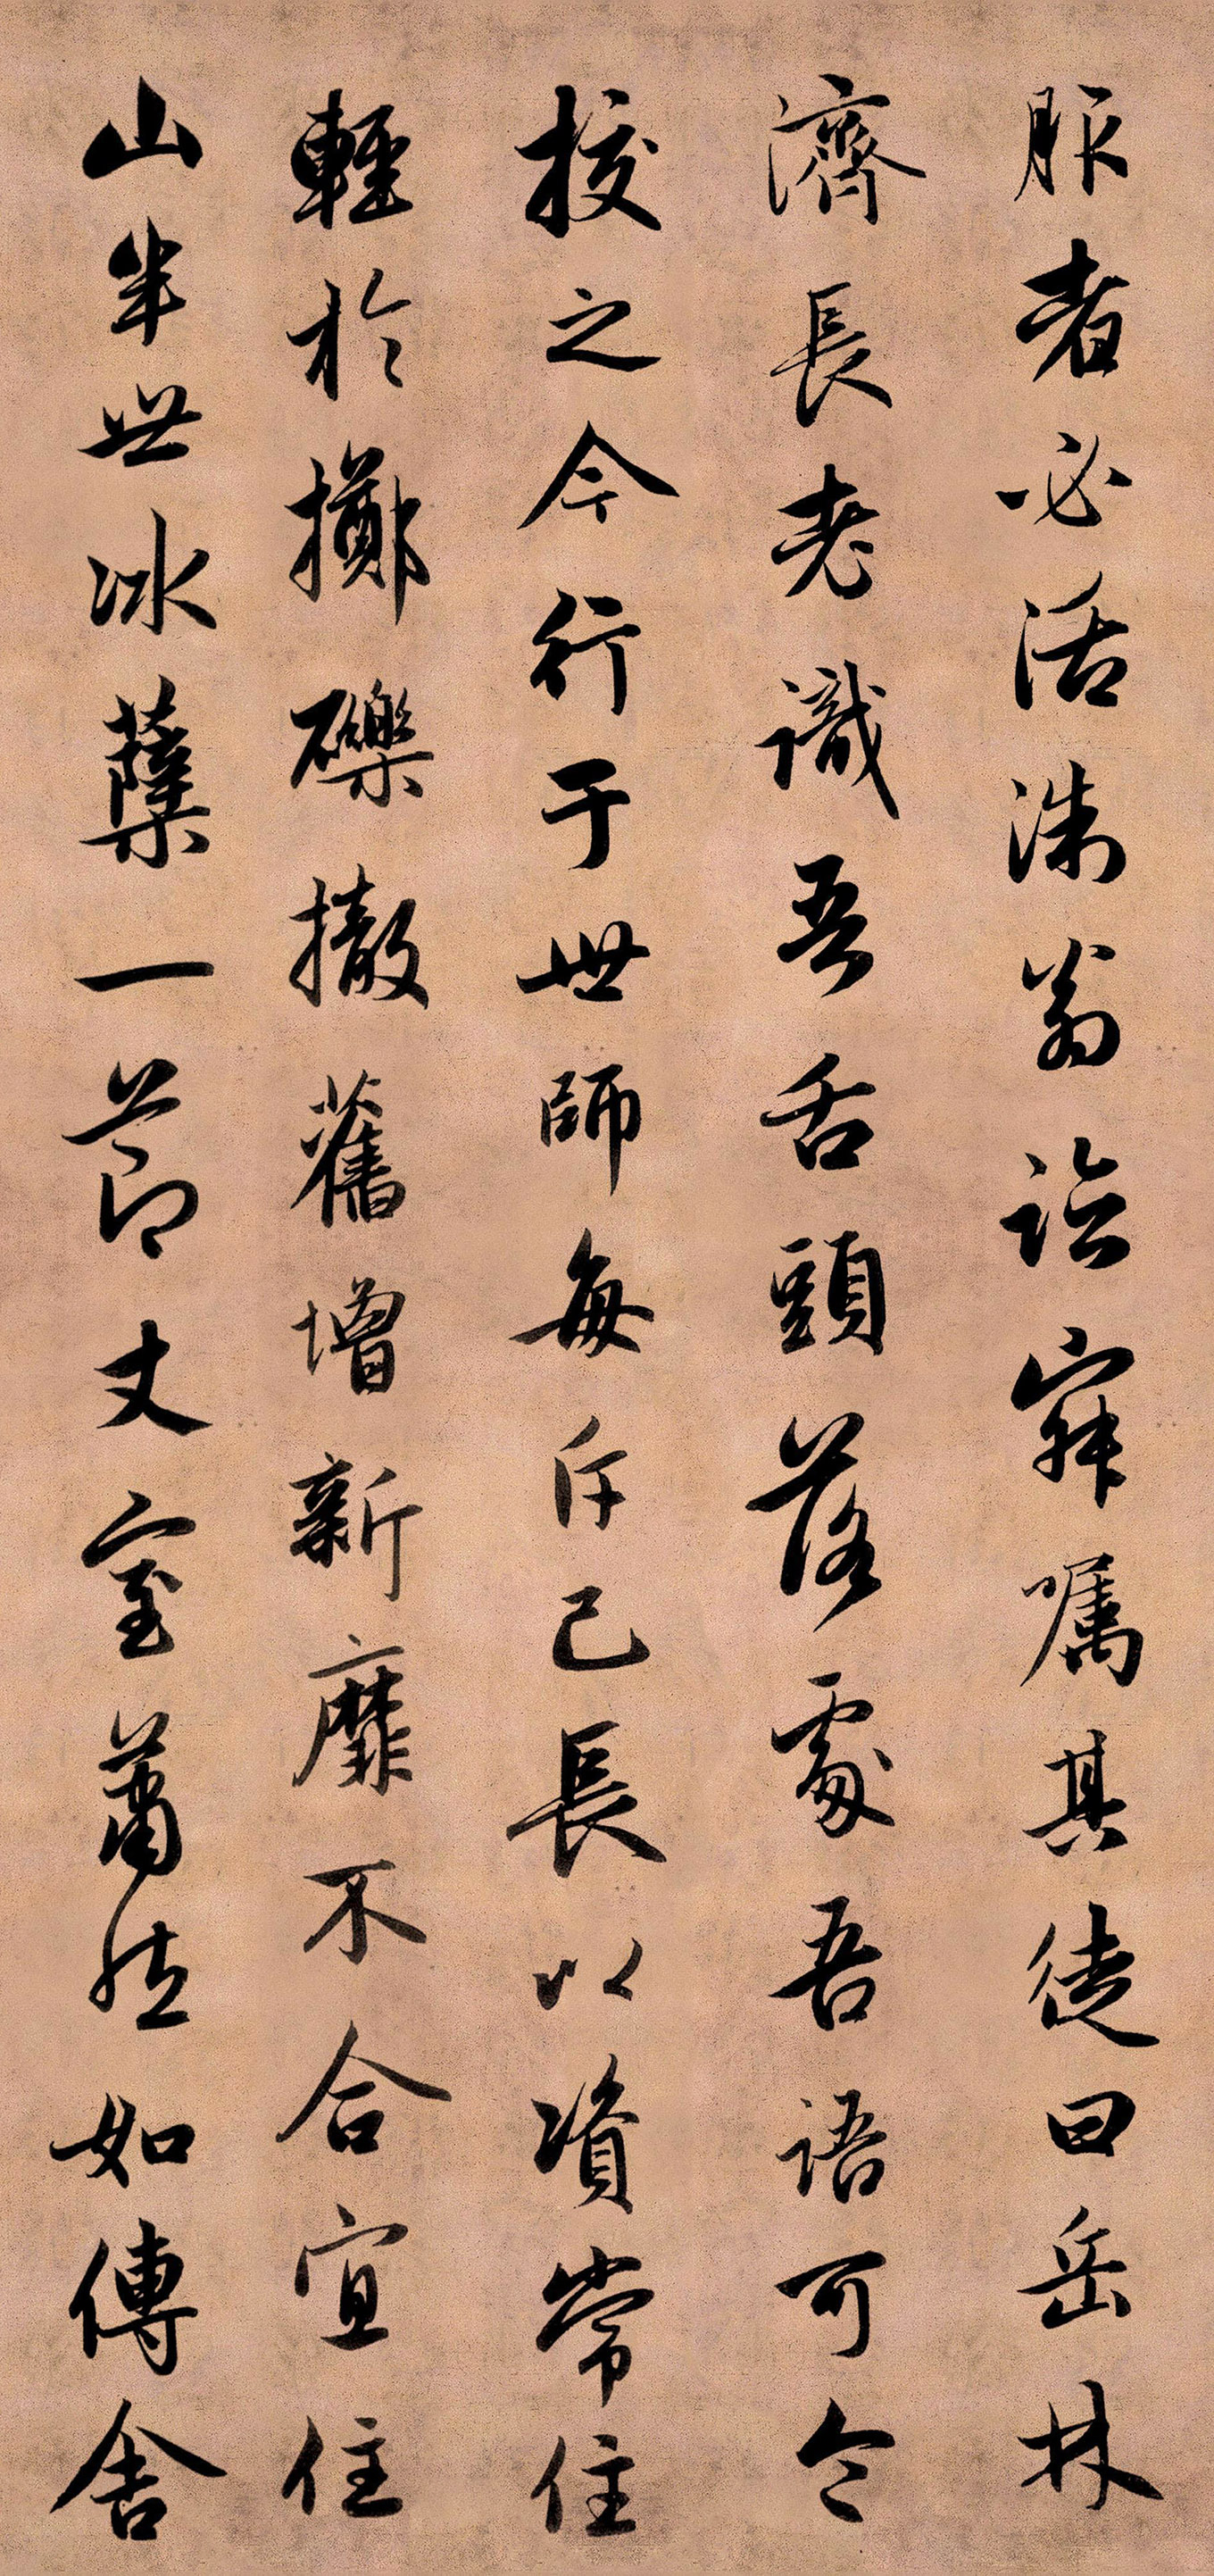 者必活洙翁囑其徒曰岳林
濟長老識吾舌頭落處吾語可令
挍之今行于世師每斥己長以資常住
輕於擲礫撤舊增新靡不合宜住
山半世冰蘗一節丈室蕭然如傳舍